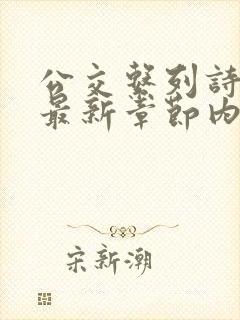 公交繫列詩
最新章節内
宋新潮